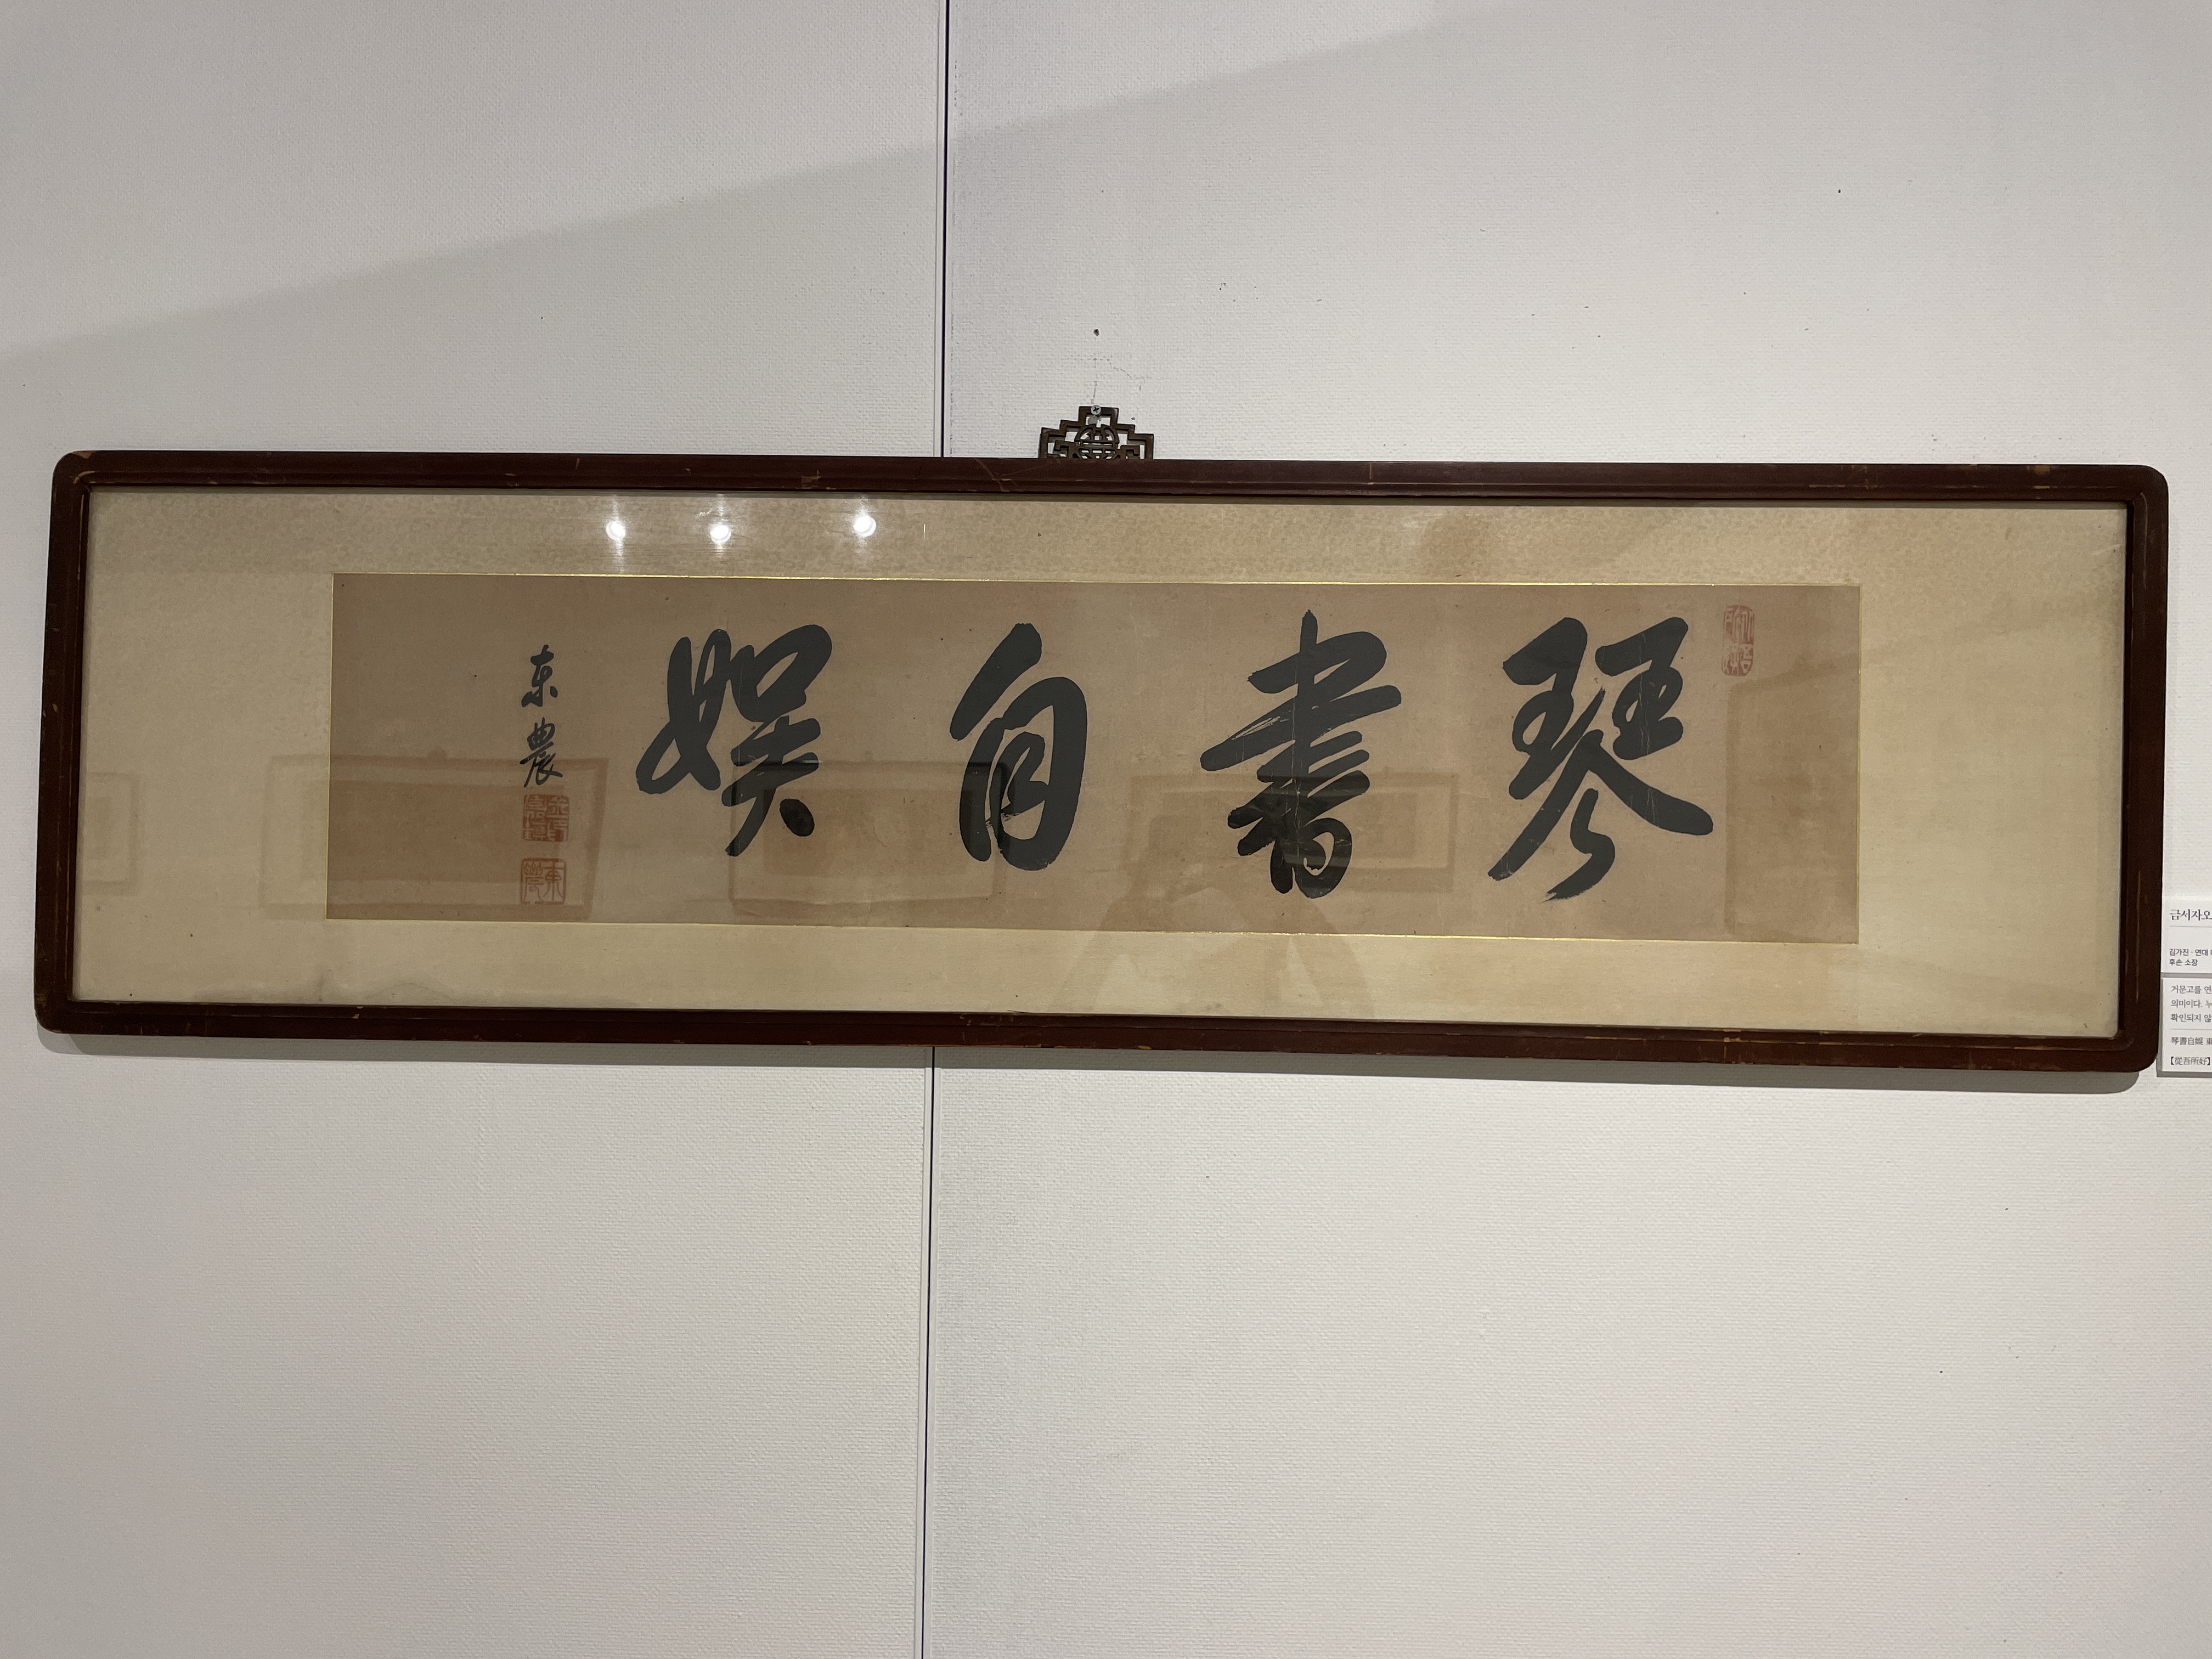 琴書自娛
東農
金嘉鎮
東農
금서자오
김가진 · 연대
후손 소장
거문고를 연
의미이다. 누
확인되지 않
琴書自娛 東
【從吾所好】